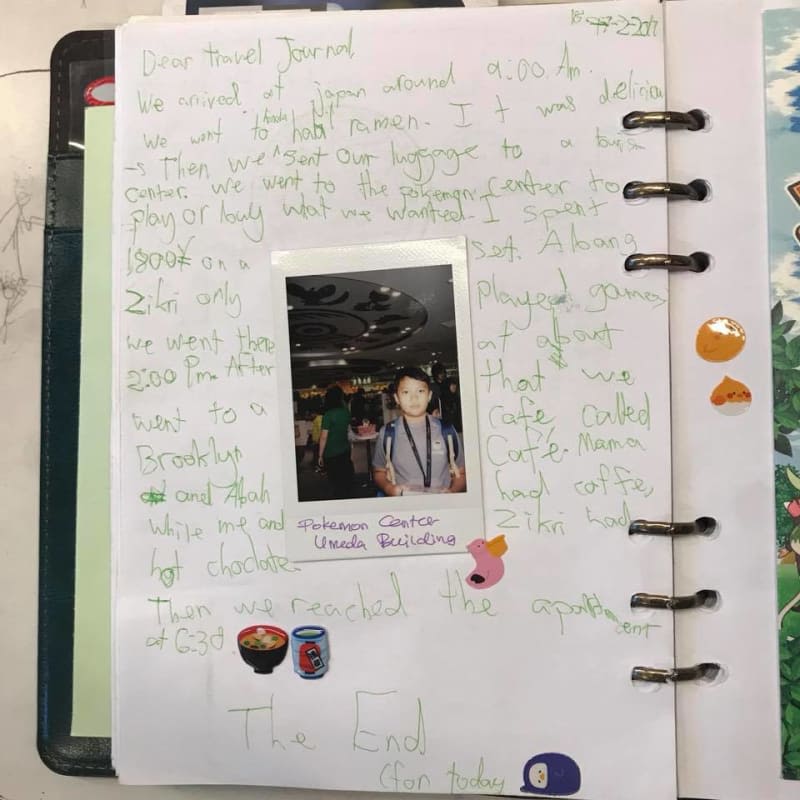 18-2-2017
Dear travel Journal
We arrived at japan around 9:00 Am.
We went to halal ramen. It was delicious
→ Then we sent our luggage to a tourism
center. We went to the pokemon center to
play or buy what we wanted. I spent
1800¥ on a set. Abang
Zikri only played games
we went there at about
2:00 Pm. After that we
went to a cafe called
Brooklyn Cafe. Mama
and Abah had coffe,
while me and Zikri had
hot choclate.
Pokemon Center
Umeda Building
Then we reached the apartment
at 6:30.
The End
(for today